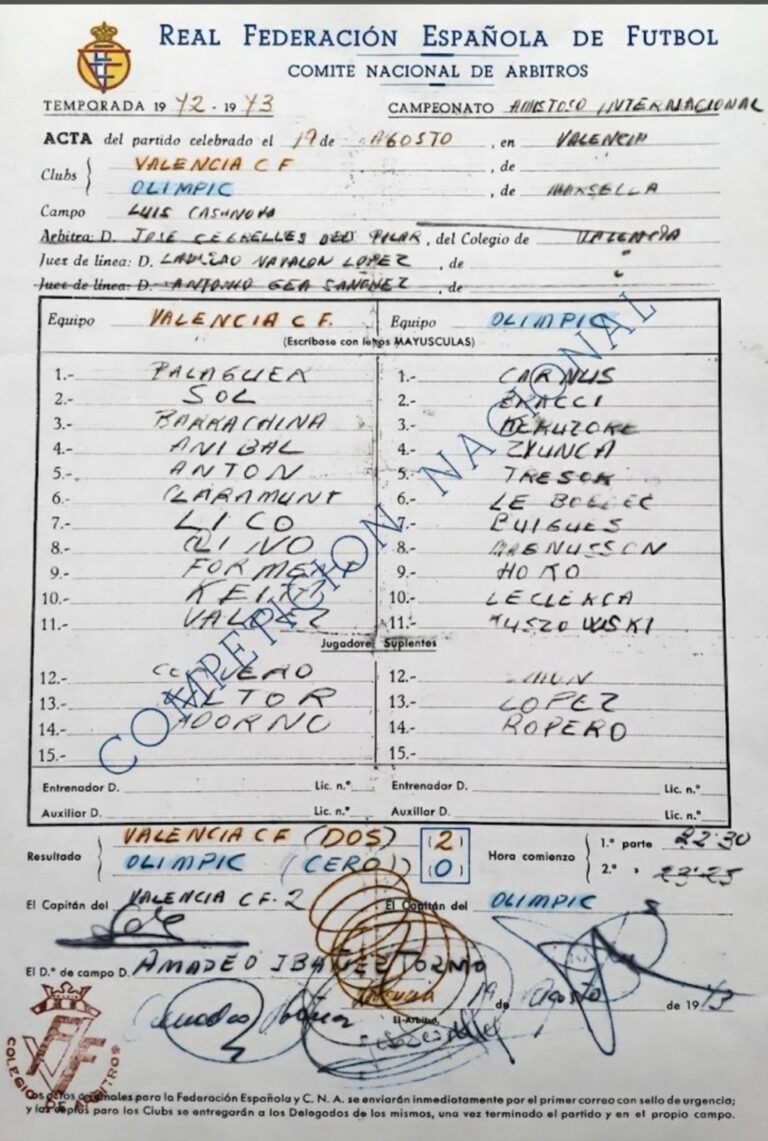 REAL FEDERACIÓN ESPAÑOLA DE FUTBOL
COMITE NACIONAL DE ARBITROS
TEMPORADA 1972 - 1973 CAMPEONATO AMISTOSO INTERNACIONAL
ACTA del partido celebrado el 19 de AGOSTO, en VALENCIA
Clubs VALENCIA C F, de
OLIMPIC, de MARSELLA
Campo LUIS CASANOVA
Arbitra: D. JOSE CECRELLES DEL PILAR, del Colegio de VALENCIA
Juez de línea: D. LADISLAO NAVALON LOPEZ, de "
Juez de línea: D. ANTONIO GEA SANCHEZ, de "
Equipo VALENCIA C F. Equipo OLIMPIC
(Escríbase con letras MAYUSCULAS)
1.- PALAGUER 1.- CARNUS
2.- SOL 2.- BRACCI
3.- BARRACHINA 3.-
4.- ANIBAL 4.- ZVUNCA
5.- ANTON 5.- TRESOR
6.- CLARAMUNT 6.- LE
7.- LICO 7.- BUIGUES
8.- QUINO 8.- MAGNUSSON
9.- FORMENT 9.-
10.- KEITA 10.- LECLERCA
11.- VALDEZ 11.-
Jugadores Suplentes
12.- CERVERO 12.-
13.- 13.- LOPEZ
14.- ADORNO 14.- ROPERO
15.- 15.-
Entrenador D. Lic. n.º Entrenador D. Lic. n.º
Auxiliar D. Lic. n.º Auxiliar D. Lic. n.º
Resultado VALENCIA C F (DOS) (2) Hora comienzo 1.ª parte 22:30
OLIMPIC (CERO) (0) 2.ª » 23:25
El Capitán del VALENCIA C F.-2 El Capitán del OLIMPIC
El D.º de campo D. AMADEO IBAÑEZ TORMO
Valencia 19 de Agosto de 1973
El Arbitro,
COLEGIO DE ARBITROS
COMPETICION NACIONAL
Las actas originales para la Federación Española y C. N. A. se enviarán inmediatamente por el primer correo con sello de urgencia;
y las copias para los Clubs se entregarán a los Delegados de los mismos, una vez terminado el partido y en el propio campo.